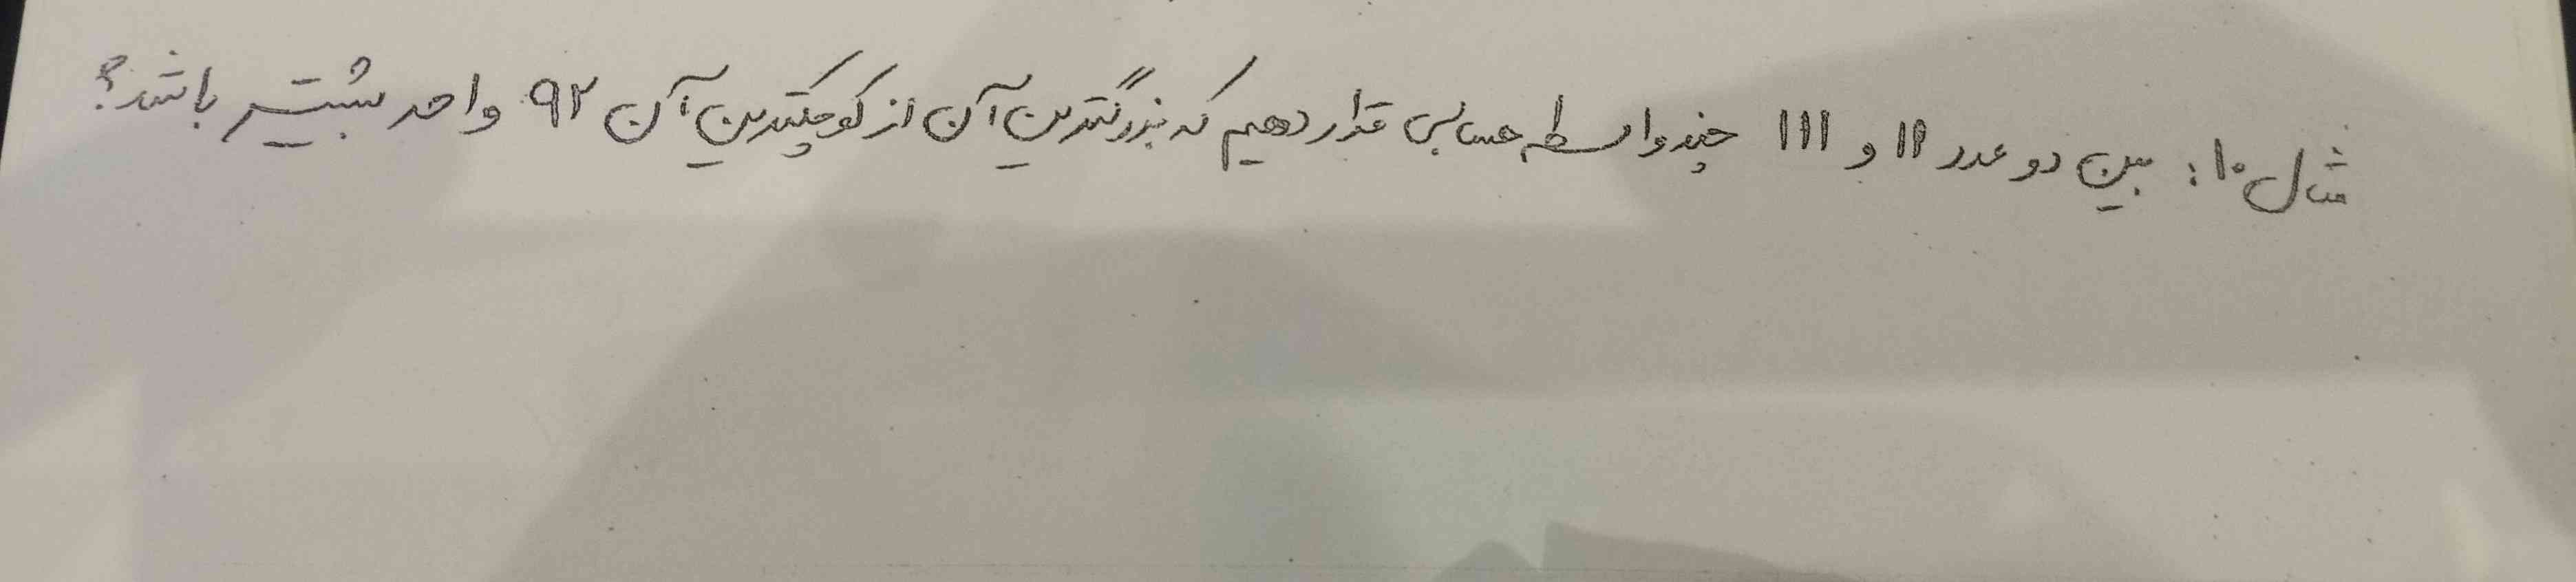 مثال ۱۰: بین دو عدد ۱۱ و ۱۱۱ چند واسطه حسابی قرار دهیم که بزرگترین آن از کوچکترین آن ۹۲ واحد بیشتر باشد؟